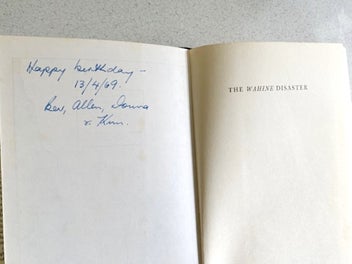 Happy birthday –
13/4/69.
Bev, Allen, Donna
& Kim.
THE WAHINE DISASTER